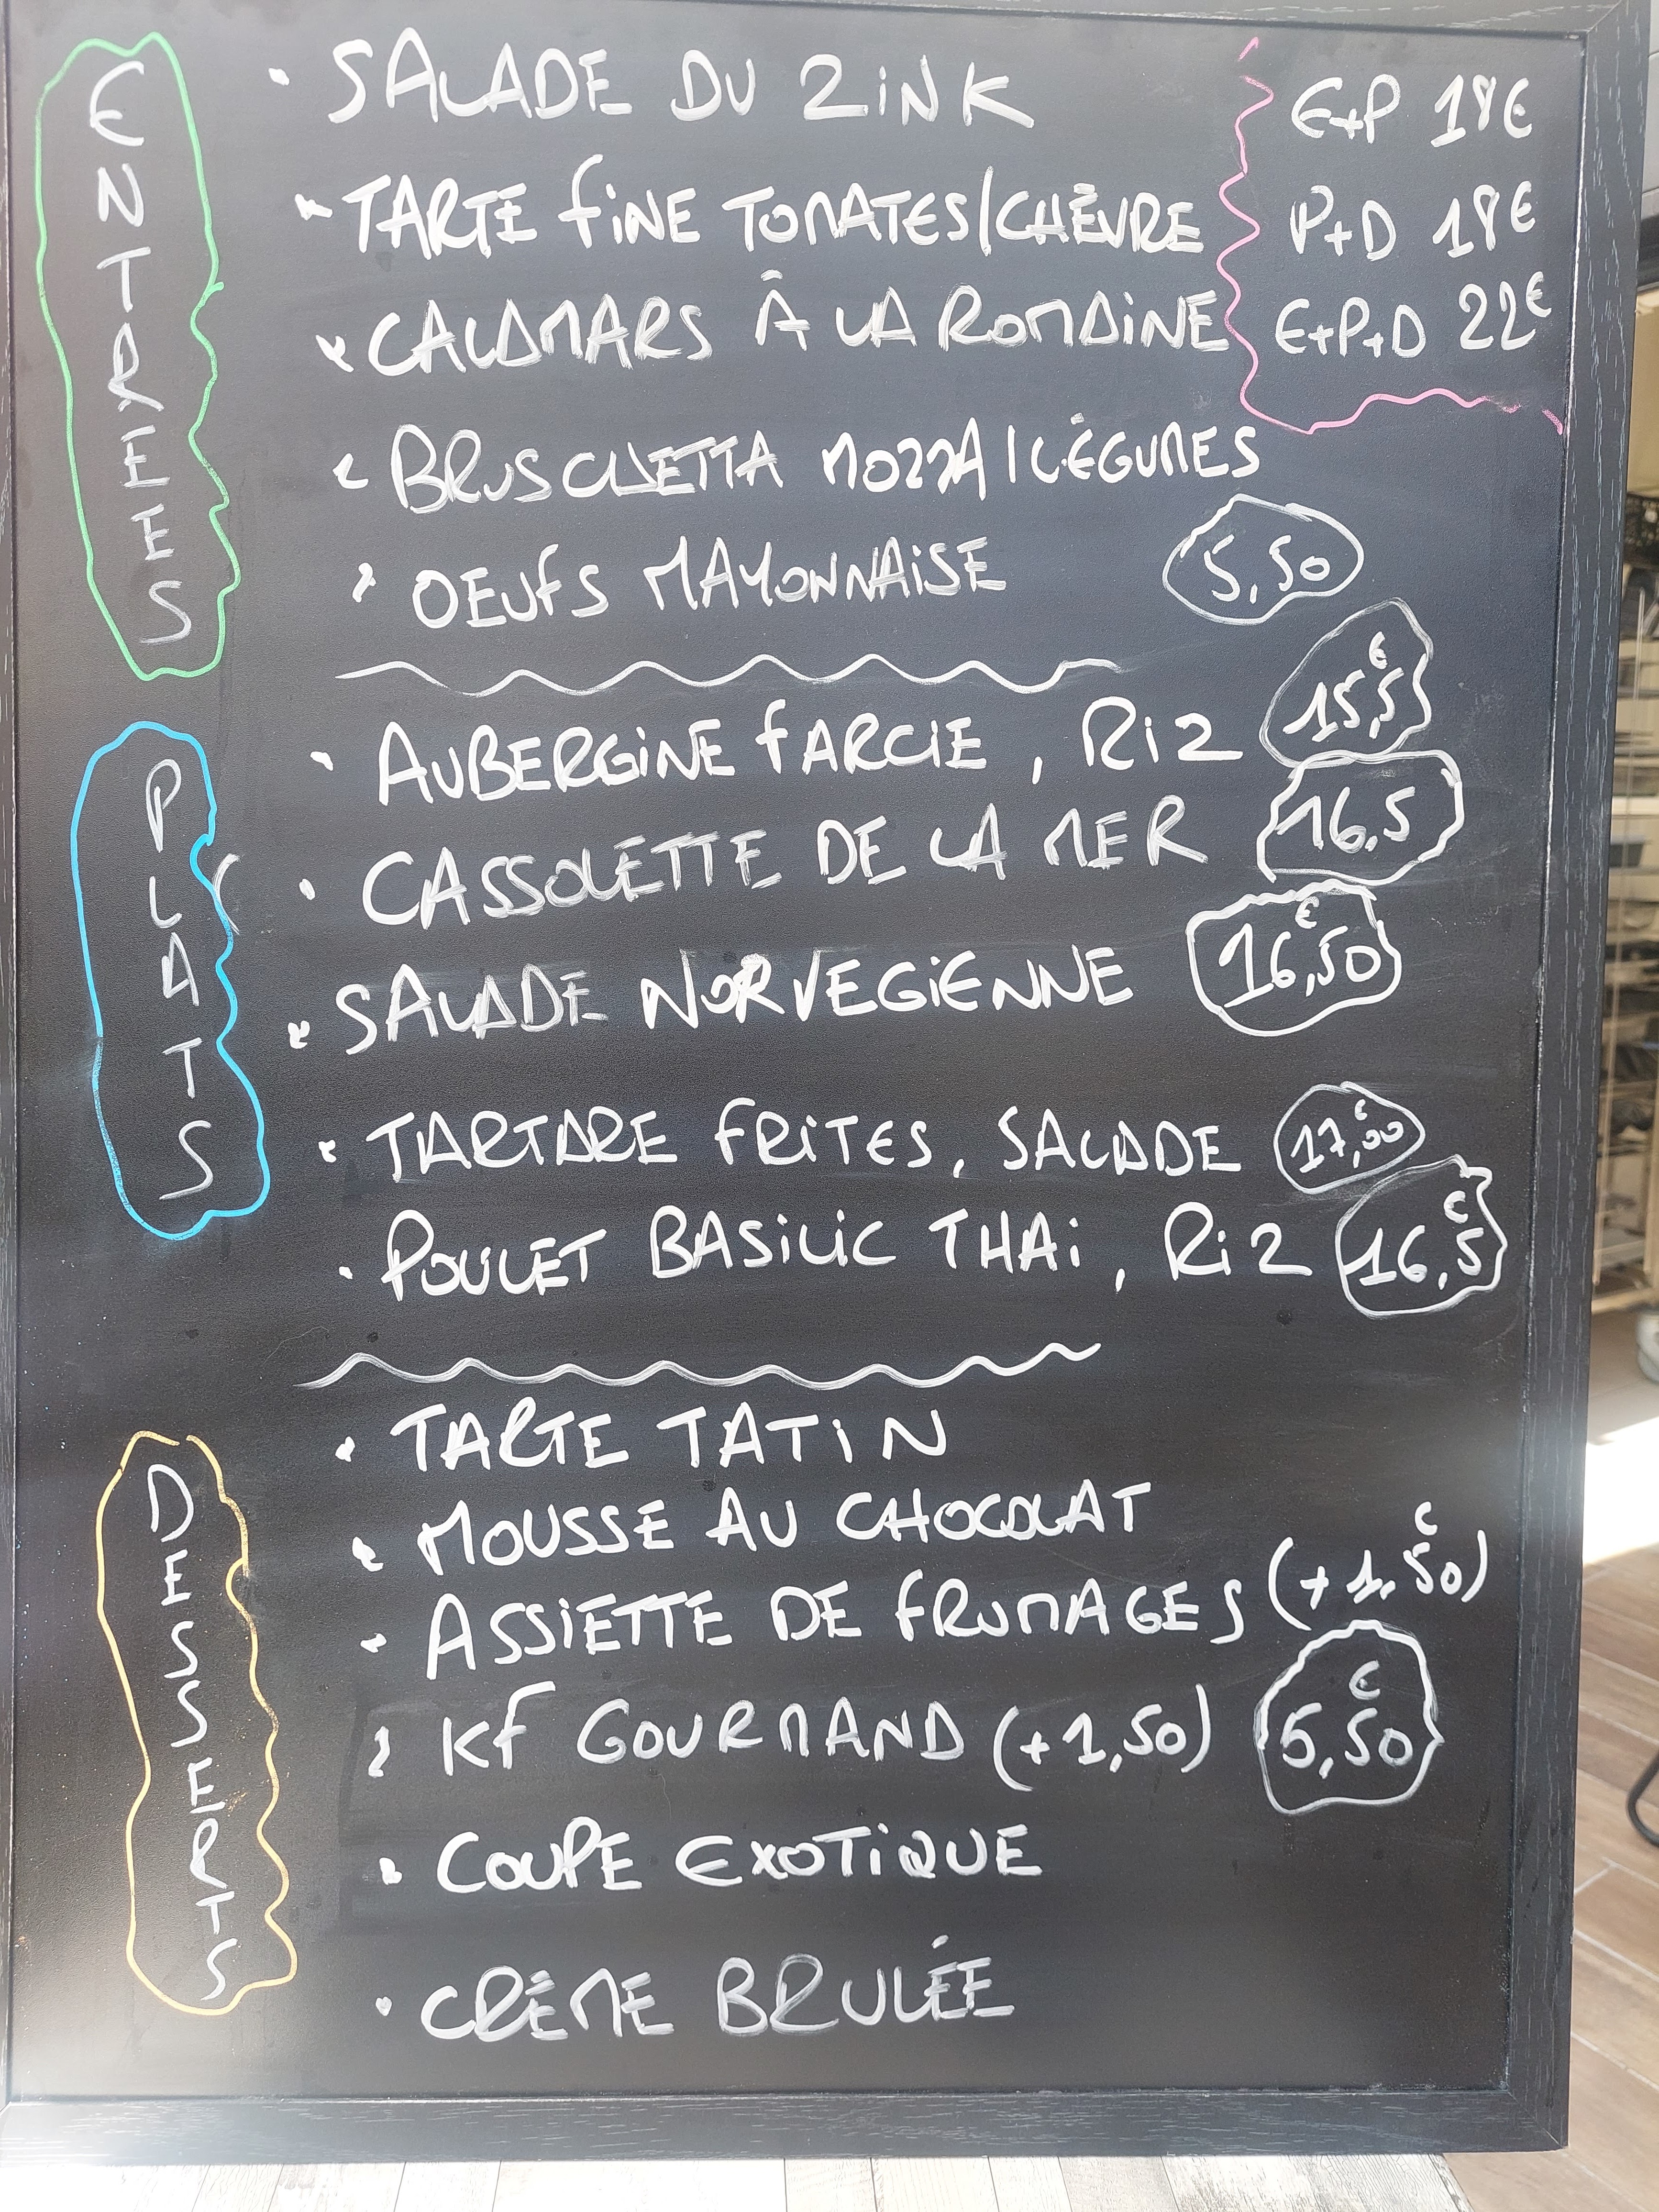 ENTREES
• SALADE DU ZINK
E+P 18€
• TARTE fINE TOMATES/CHÈVRE
P+D 18€
• CALAMARS À LA ROMAINE
E+P+D 22€
• BRUSCHETTA MOZZA/LÉGUMES
• OEUfS MAYONNAISE 5,50
PLATS
• AUBERGINE fARCIE, RIZ 15,5€
• CASSOLETTE DE LA MER 16,5
• SALADE NORVEGIENNE 16,50€
• TARTARE FRITES, SALADE 17,00€
• POULET BASILIC THAI, RIZ 16,5€
DESSERTS
• TARTE TATIN
• MOUSSE AU CHOCOLAT
• ASSIETTE DE fROMAGES (+1,50€)
• Kf GOURMAND (+1,50) 5,50€
• COUPE EXOTIQUE
• CRÈME BRULÉE